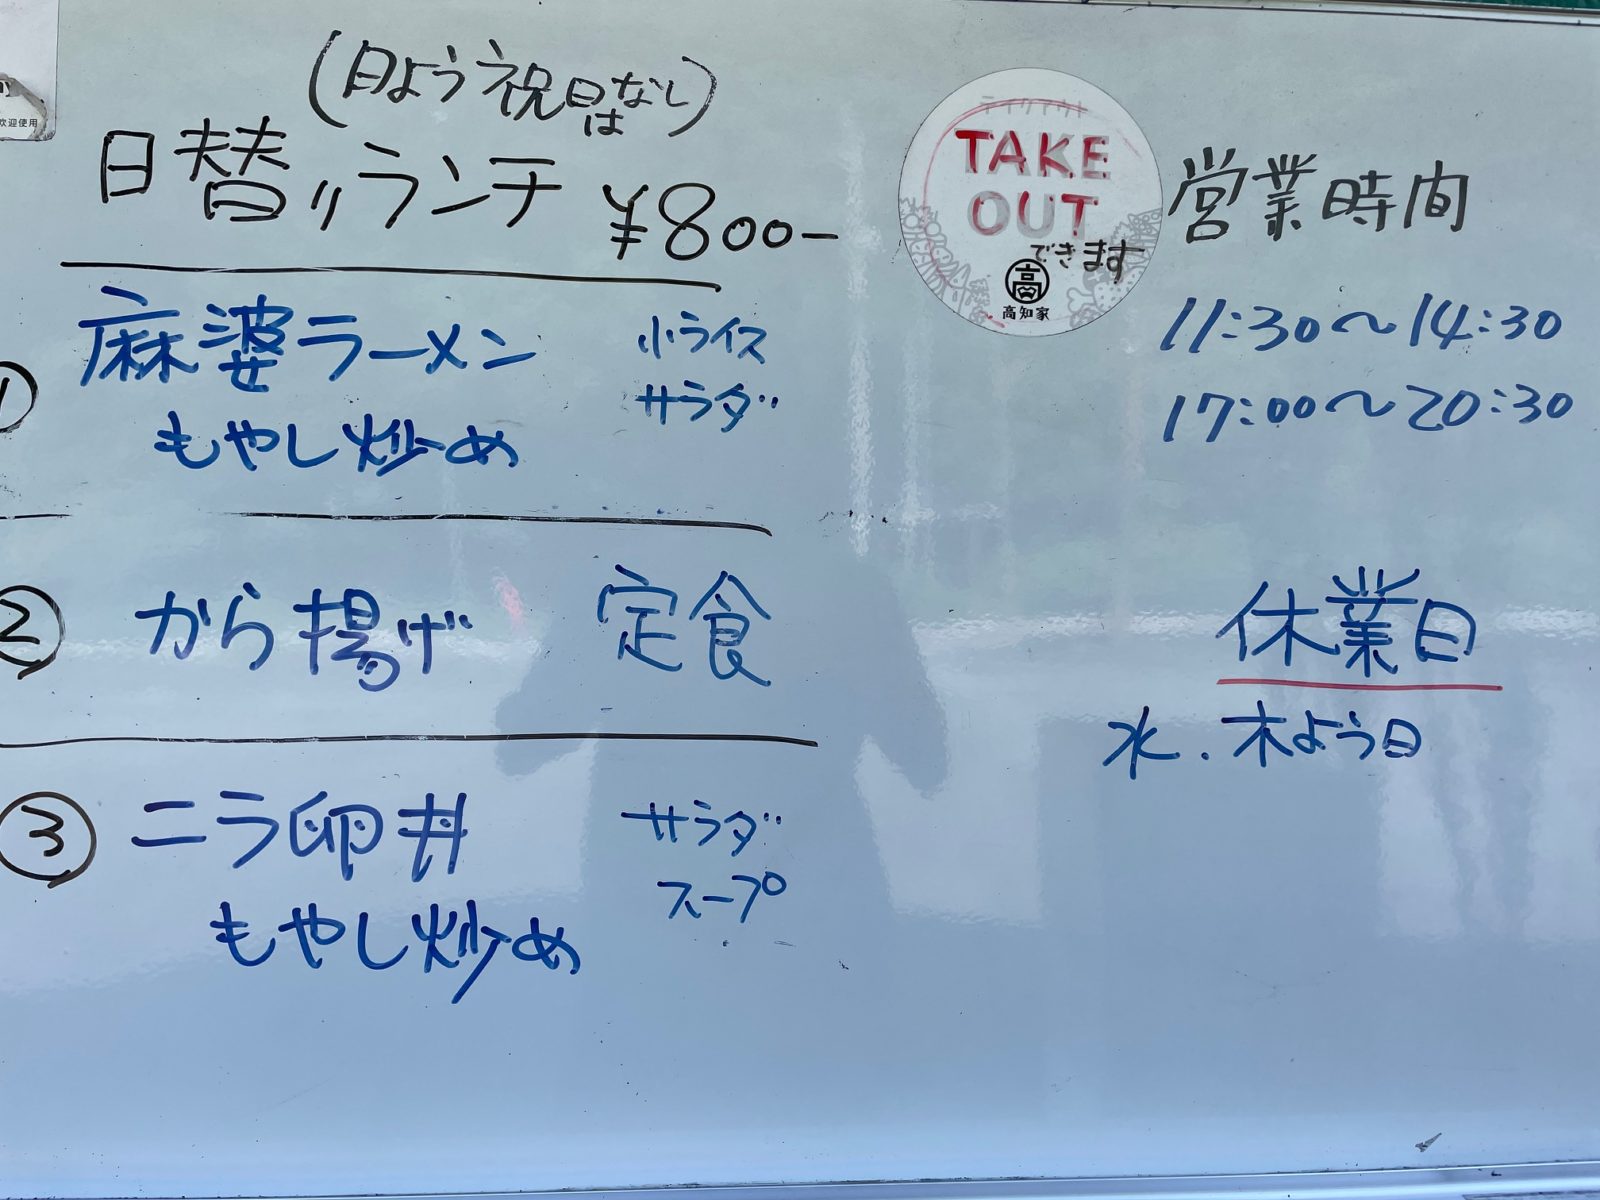 (日よう祝日はなし)
日替りランチ ¥800-
① 麻婆ラーメン 小ライス
もやし炒め サラダ
② から揚げ 定食
③ ニラ卵丼 サラダ
もやし炒め スープ
テイクアウト
TAKE
OUT
できます
高
高知家
営業時間
11:30〜14:30
17:00〜20:30
休業日
水.木よう日
欢迎使用